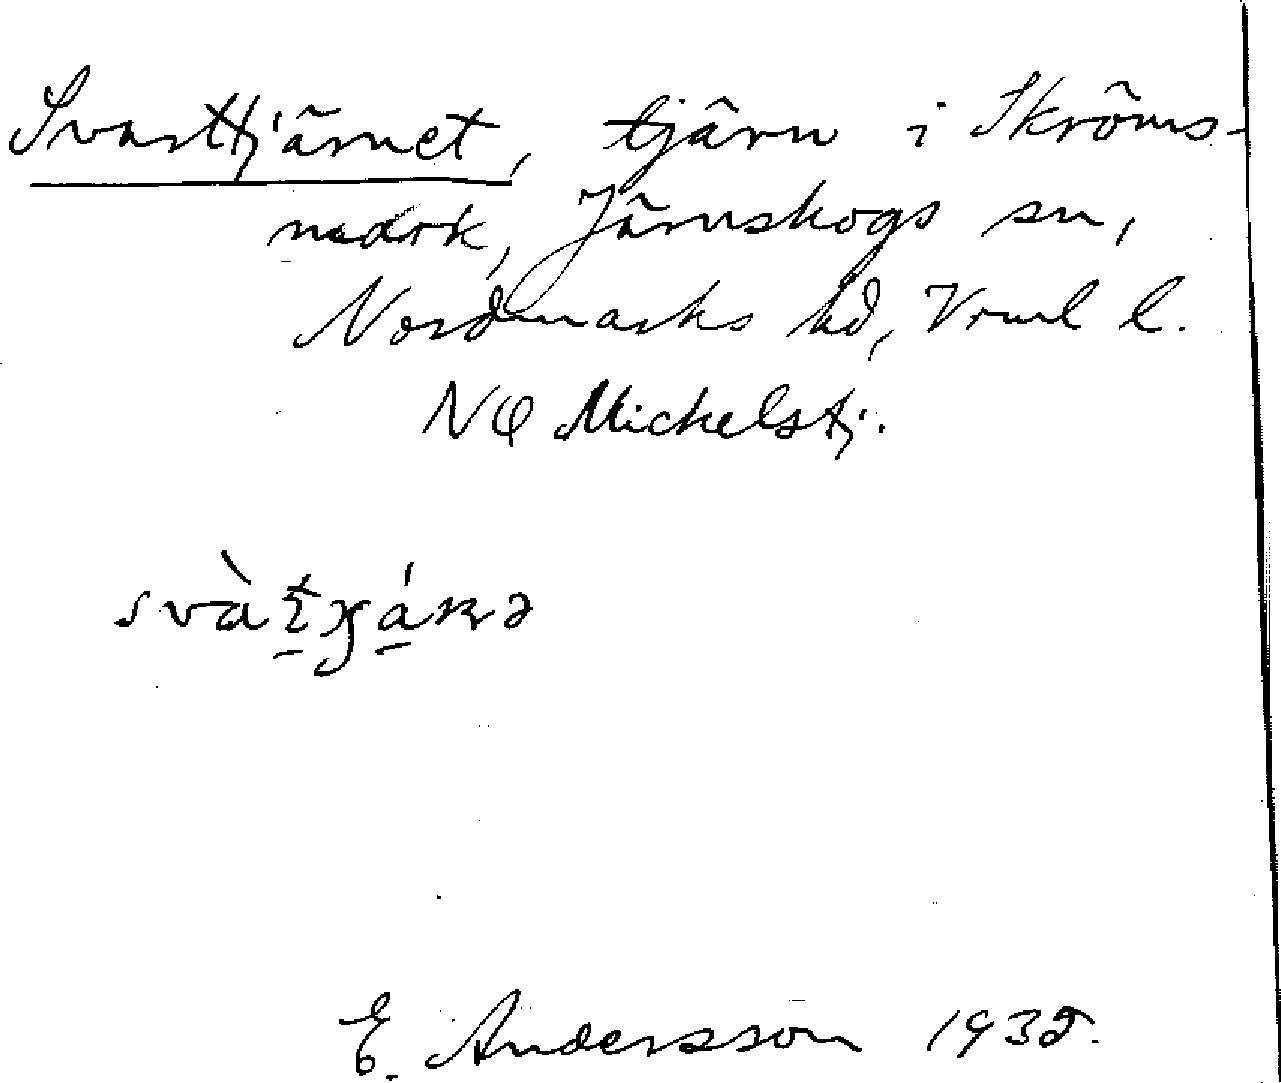 Svarttjärnet, tjärn i Skröms-
mark, Järnskogs sn,
Nordmarks hd, Vrml l.
NO Mickelstj.
E. Andersson 1932.